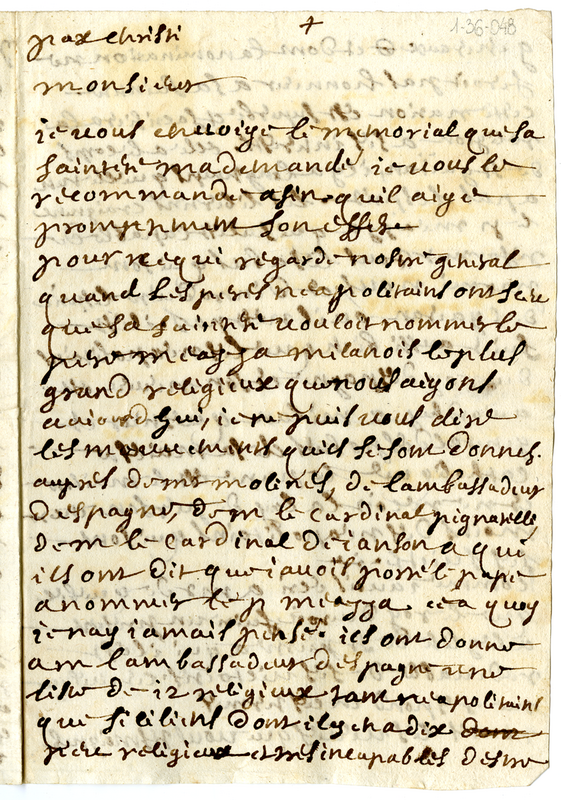 +
1-36-048
pax christi
monsieur
je vous envoige le memorial que sa
saintete ma demandé je vous le
recommande afin quil aige
promptement son effete
pour ce qui regarde nostre general
quand les peres neapolitains ont sceu
que sa saintete vouloit nommer le
pere meazza milanois le plus
grand religieux que nous aigons
auiourdhui, je ne puis vous dire
les mouuements quils se sont donnes
aupres de mr molines, de lambassadeur
despagne, de m le cardinal pignatelle,
de m le cardinal de janson a qui
ils ont dit que javois porté le pape
a nommer le p meazza ce a quoy
je nay jamais pensé. ils ont donne
a m lambassadeur despagne une
liste de 12 religieux tant neapolitains
que siciliens dont il y en a dix
religieux et tres incapables destre